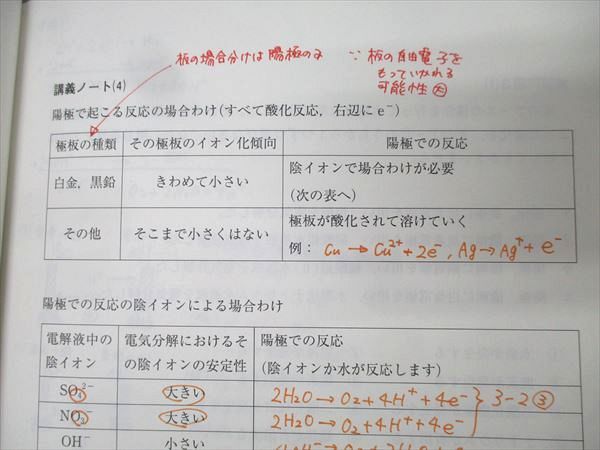 板の場合分けは陽極のみ ∵ 板の自由電子を
もっていかれる
可能性大
講義ノート(4)
陽極で起こる反応の場合わけ(すべて酸化反応，右辺に e⁻)
極板の種類 その極板のイオン化傾向 陽極での反応
白金，黒鉛 きわめて小さい 陰イオンで場合わけが必要
(次の表へ)
その他 そこまで小さくはない 極板が酸化されて溶けていく
例： Cu → Cu²⁺ + 2e⁻ , Ag → Ag⁺ + e⁻
陽極での反応の陰イオンによる場合わけ
電解液中の 電気分解におけるそ 陽極での反応
陰イオン の陰イオンの安定性 (陰イオンか水が反応します)
SO₄²⁻ 大きい 2H₂O → O₂ + 4H⁺ + 4e⁻ 3-2③
NO₃⁻ 大きい 2H₂O → O₂ + 4H⁺ + 4e⁻
OH⁻ 小さい